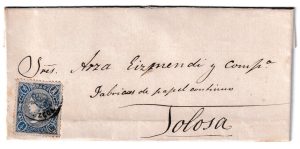 Sres. Arza Eizmendi y compª
Fabricas de papel continuo
Tolosa